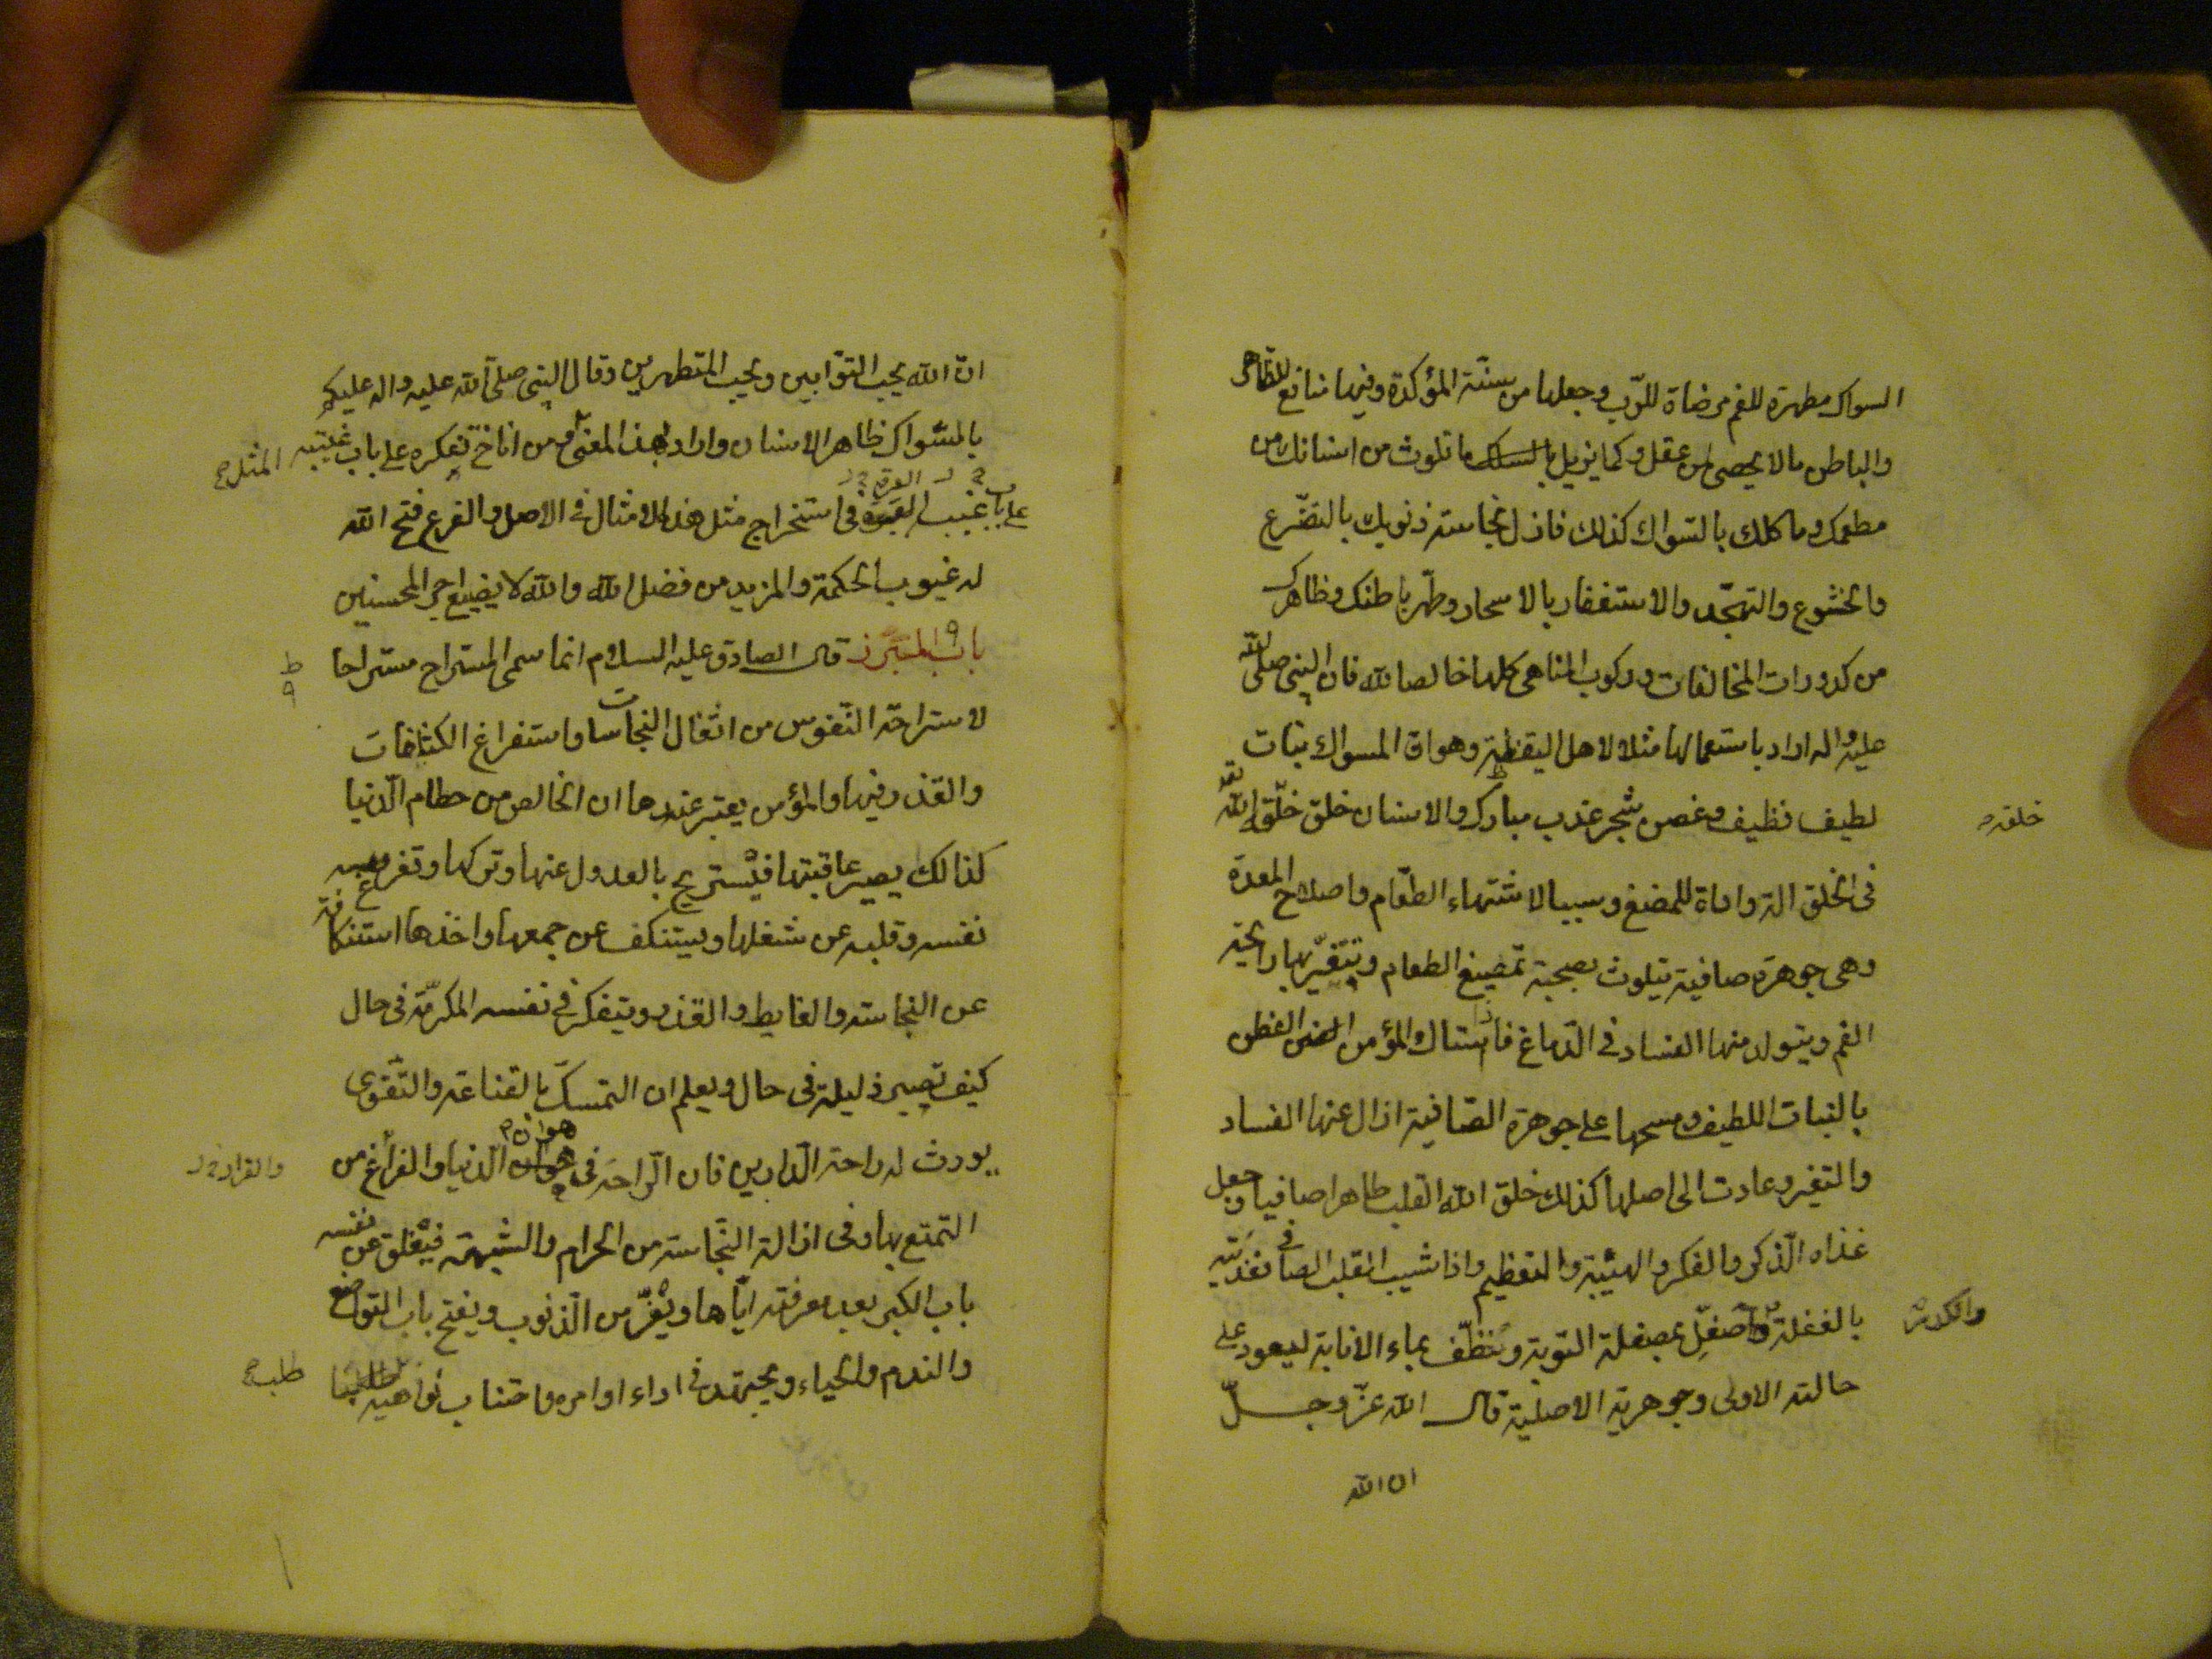 السواك مطهرة للفم مرضاة للرّب وجعلها من سنته المؤكدة وفيها منافع للظّاهر
والباطن مالا يحصى لمن عقل وكما يزيل بالسلك ما تلوث من اسنانك من
مطعمك وما كلك بالسّواك كذلك فازل نجاسته ذنوبك بالتضّرع
والخشوع والتهجّد والاستغفار بالاسحار وطهّر باطنك وظاهرك
من كدورات المخالفات وركوب المناهى كلها خالصا لله فان النبى صلى الله
عليه واله اراد باستعمالها مثلا لاهل اليقظة وهو ان المسواك نبات
لطيف نظيف وغصن شجر عذب مبارك والاسنان خلق خلّقه الله تعه
خلقه
فى الخلق الة واداة للمضغ وسببا لاشتهاء الطّعام واصلاح المعدة
وهى جوهرة صافية يتلوث بصحبة تمضيغ الطعام ويتغيّر بها رايحة
الفم ويتولد منها الفساد فى الدّماغ فاذا استاك المؤمن الفطن
بالنبات اللطيف ومسحها على جوهرة الصّافية ازال عنها الفساد
والتغير وعادت الى اصلها كذلك خلق الله القلب طاهرا صافيا وجعل
غذاه الّذكر والفكر والهيبة والتعظيم واذا شيب القلب الصافى بغذيته
بالغفلة صقل بمصقلة التوبة ونظّف بماء الانابة ليعود على
والكدر
حالته الاولى وجوهرية الاصلية قال الله عزّ وجلّ
ان الله
انّ الله يحب التوّابين ويحب المتطهرين وقال النبى صلى الله عليه واله عليكم
بالسّواك ظاهر الاسنان واراد هذا المعنى ومن اناخ تفكره على باب عتبة
المثل
على باب عتبة العبرة فى استخراج مثل هذه الامثال فى الاصل والفرع فتح الله
له عيوب الحكمة والمزيد من فضل الله والله لا يضيع اجر المحسنين
باب ٩ المتبرّز قال الصادق عليه السلام انما سمى المستراح مستراحا
ط
٩
لاستراحة النّفوس من اثقال النجاسات واستفراغ الكثافات
والقذر فيها والمؤمن يعتبر عندها ان الخالص من حطام الّدنيا
كذالك يصير عاقبتها فيستريح بالعدول عنها وتركها وتفرغ
نفسه وقلبه عن شغلها ويستنكف عن جمعها واخذها استنكافه
عن النجاسته والغايط والقذر ويتفكر فى نفسه المكرمّة فى حال
كيف تصير ذليلة فى حال ويعلم ان التمسكّ بالقناعته والتّقوى
يورث له راحة الدّارين فان الرّاحة فى هوان الّدنيا والفراغ من
هوان
التمتع بها وفى ازالة النّجاسته من الحرام والشبهة فيغلق عن نفسه
باب الكبر بعد معرفته ايّاها ويفرّ من الّذنوب ويفتح باب التواضع
والندم والحياء ويجتهد فى اداء اوامره واجتناب نواهيه
طلب